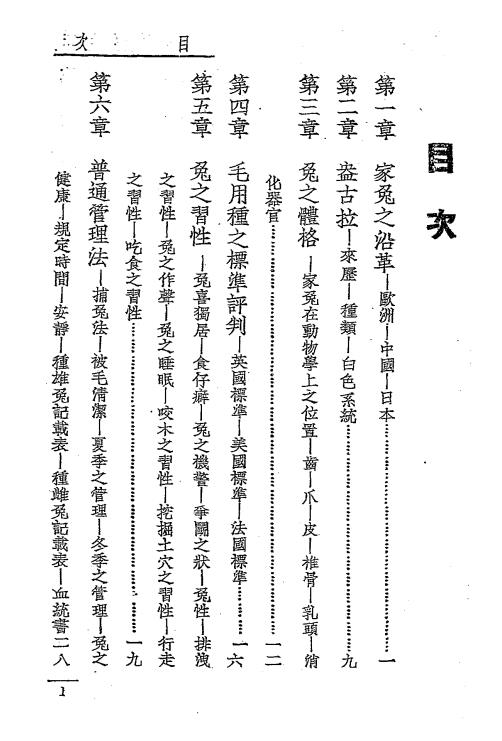 目次
目次
第一章 家兔之沿革—歐洲—中國—日本……一
第二章 盎古拉—來歷—種類—白色系統……九
第三章 兔之體格—家兔在動物學上之位置—齒—爪—皮—椎骨—乳頭—消
化器官……一二
第四章 毛用種之標準評判—英國標準—美國標準—法國標準……一六
第五章 兔之習性—兔喜獨居—食仔癖—兔之機警—爭鬭之狀—兔性—排洩
之習性—兔之作聲—兔之睡眠—咬木之習性—挖掘土穴之習性—行走
之習性—吃食之習性……一九
第六章 普通管理法—捕兔法—被毛清潔—夏季之管理—冬季之管理—兔之
健康—規定時間—安靜—種雄兔記載表—種雌兔記載表—血統書二八
1